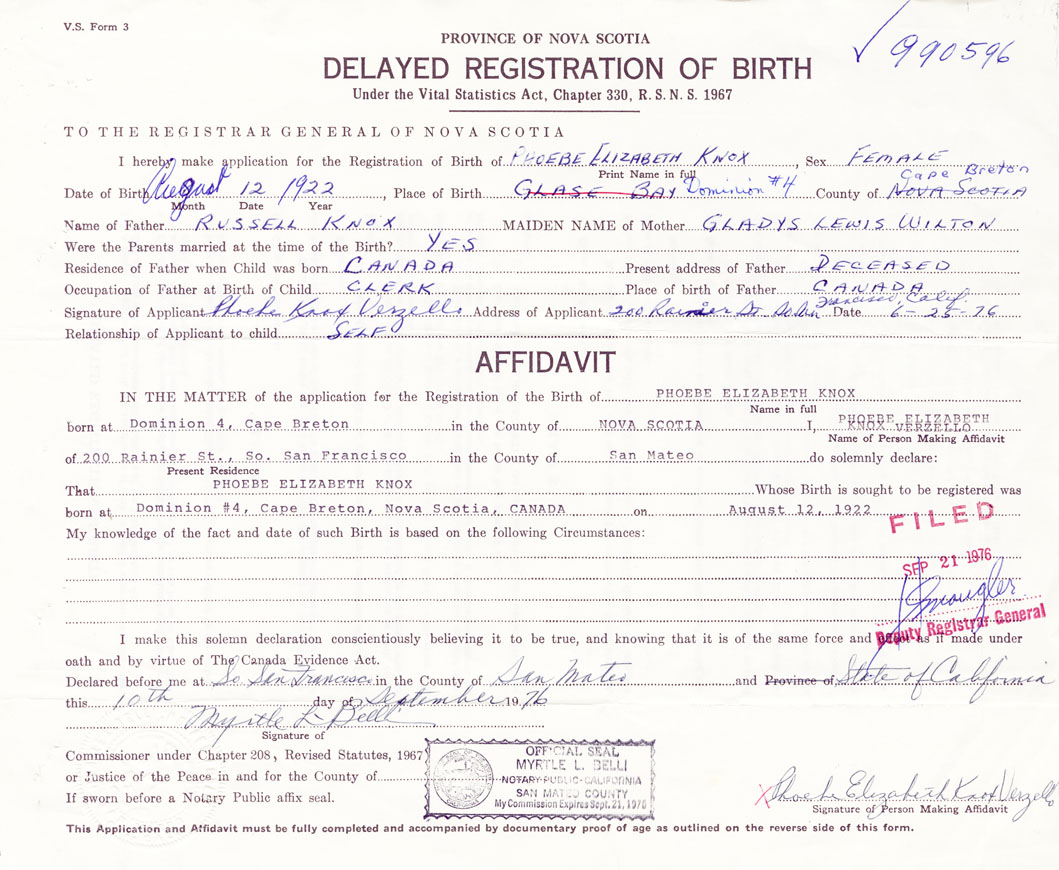 V.S. Form 3
990596
PROVINCE OF NOVA SCOTIA
DELAYED REGISTRATION OF BIRTH
Under the Vital Statistics Act, Chapter 330, R.S.N.S. 1967
TO THE REGISTRAR GENERAL OF NOVA SCOTIA
I hereby make application for the Registration of Birth of PHOEBE ELIZABETH KNOX, Sex FEMALE
Print Name in full
Cape Breton
Date of Birth August 12 1922, Place of Birth GLASE BAY Dominion #4 County of NOVA SCOTIA
Month Date Year
Name of Father RUSSELL KNOX MAIDEN NAME of Mother GLADYS LEWIS WILTON
Were the Parents married at the time of the Birth? YES
Residence of Father when Child was born CANADA Present address of Father DECEASED
Occupation of Father at Birth of Child CLERK Place of birth of Father CANADA
Francisco, Calif.
Signature of Applicant Phoebe Knox Verzello Address of Applicant 200 Rainier St. So San Date 6-25-76
Relationship of Applicant to child SELF
AFFIDAVIT
IN THE MATTER of the application for the Registration of the Birth of PHOEBE ELIZABETH KNOX
Name in full
born at Dominion 4, Cape Breton in the County of NOVA SCOTIA I, PHOEBE ELIZABETH KNOX VERZELLO
Name of Person Making Affidavit
of 200 Rainier St., So. San Francisco in the County of San Mateo do solemnly declare:
Present Residence
That PHOEBE ELIZABETH KNOX Whose Birth is sought to be registered was
born at Dominion #4, Cape Breton, Nova Scotia, CANADA on August 12, 1922
FILED
My knowledge of the fact and date of such Birth is based on the following Circumstances:
SEP 21 1976
Deputy Registrar General
I make this solemn declaration conscientiously believing it to be true, and knowing that it is of the same force and effect as if made under
oath and by virtue of The Canada Evidence Act.
Declared before me at So San Francisco in the County of San Mateo and Province of State of California
this 10th day of September 1976
Myrtle L. Belli
Signature of
Commissioner under Chapter 208, Revised Statutes, 1967
or Justice of the Peace in and for the County of
If sworn before a Notary Public affix seal.
OFFICIAL SEAL
MYRTLE L. BELLI
NOTARY PUBLIC - CALIFORNIA
SAN MATEO COUNTY
My Commission Expires Sept. 21, 1976
X Phoebe Elizabeth Knox Verzello
Signature of Person Making Affidavit
This Application and Affidavit must be fully completed and accompanied by documentary proof of age as outlined on the reverse side of this form.